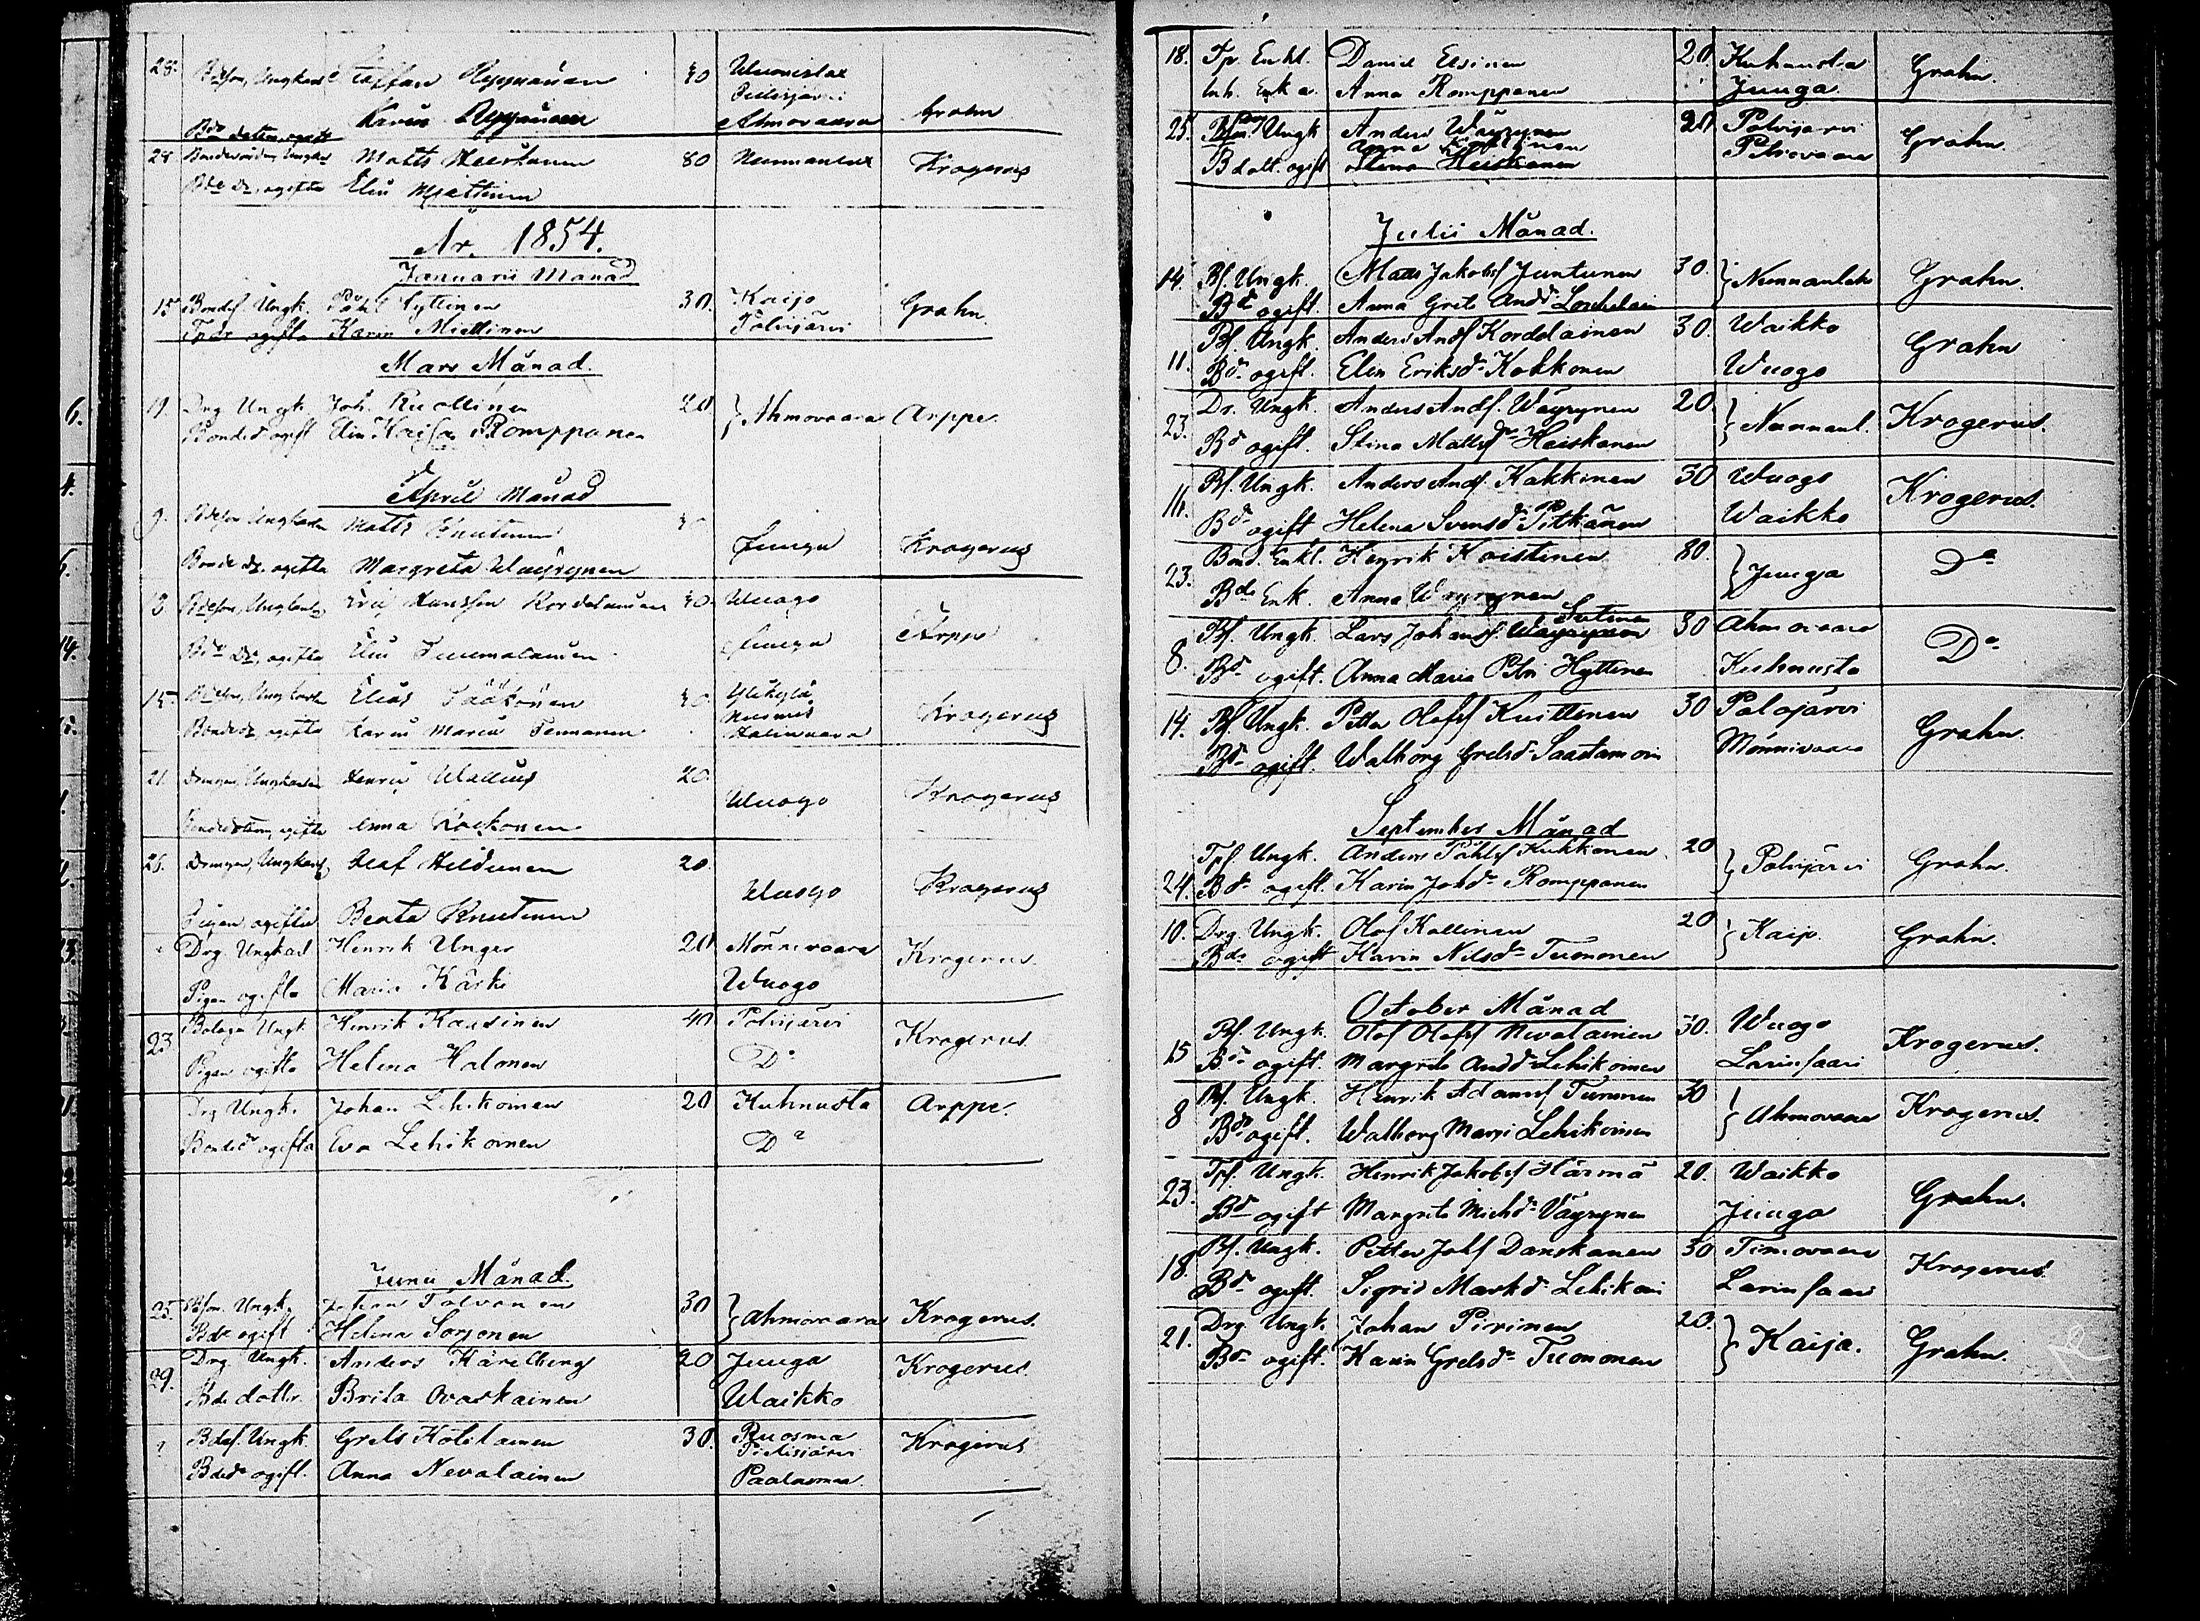 28. Bdeson, Ungkarl Staffan Ryynänen 40 Wuonislax
Pielisjärvi
Karin Ryynänen Ahmovaara Grahn
Bde dotter, ogift
28 Matts Heiskanen 80 Nunnanlax Krogerus
Bde dr, ogifta Elin Miettinen
År. 1854.
Januarii Månad
15 Bondes. Ungk. Påhl Hyttinen 30. Kaijo Grahn.
Karin Miettinen Polvijärvi
Mars Månad.
19. Drg Ungk Joh. Kuollinen 20 } Ahmovaara Arppe.
Bonded ogift Elin Kaisa Romppanen
April Månad
9. Bdeson Ungkarlen Matts Knutinen Juuga Krogerus
Bonde dr. ogifta Margreta Wäyrynen
Bdeson, Ungkarlen Eric Hansson Kordelainen 40. Wuogo Arppe
Bde dr, ogifta Elin Tuomalainen Juuga
15. Bdeson, Ungkarlen Elias Sääkönen Ylikylä Krogerus
Nurmes
Bondedr, ogifta Karin Maria Ternanen Halivaara
21. Drengen, Ungkarlen Henric Wallius 20. Wuogo Krogerus
ogifta Anna Kockonen
Drengen, Ungkarl, Olaf Hildunen 20. Wuogo Krogerus
Pigan, ogifta Beata Knutinen
Drg. Ungkarl Henrik Unger 20 Mönnivaara Krogerus.
Pigan ogifta Maria Kärki Wuogo
23 Bolagn Ungk Henrik Kausinen 40 Polvijärvi Krogerus
Pigan ogifta Helena Halonen Do
Drg Ungk. Johan Lehikoinen 20 Kuhnusta Arppe.
Bonded ogifta Eva Lehikoinen Do
Junii Månad.
25. Bson. Ungk. Johan Tolvanen 30 } Ahmovaara Krogerus.
Bdr ogift Helena Sorjonen
29. Drg. Ungk. Anders Karelberg 20 Juuga Krogerus.
Bde dottr. Brita Ovaskainen Waikko
Bdes. Ungk. Grels Kotilainen 30. Ruosma Krogerus
Pielisjärvi
Bded ogift. Anna Nevalainen Paalasmaa.
18. Tp. Enkl. Daniel Eisinen 20. Kuhnusta Grahn.
Inh. Enka. Anna Romppanen Juuga.
25. Ungk Anders Wäyrynen 20 Polvijärvi Grahn.
Anna
B dott. ogift Stina Heiskanen Petrovaara
Julii Månad.
14. Bs. Ungk. Mats Jakobsf Juntunen 30. } Nunnanlaks Grahn.
Bdr ogift. Anna Greta Andd
11. Bs. Ungk. Anders Andf Kordelainen 30. Waikko Grahn
Bdr ogift. Elin Eriksdr Kokkonen Wuogo
23. Dr. Ungk. Anders Andf. Wäyrynen 20. } Nunnanl. Krogerus.
Bdr ogift. Stina Mattsdr Heiskanen
16. Bs. Ungk. Anders Andf. Kakkinen 30 Wuogo Krogerus.
Bdr ogift Helena Svensdr Pitkänen Waikko
23. Bond. Enkl. Henrik Koistinen 80. } Juuga Do
Bde Enk. Anna Wäyrynen
Sutinen
8. Bs. Ungk. Lars Johansf. Wäyrynen 30 Ahmovaara Do
Bdr ogift. Anna Maria Petri Hyttinen Kuhnusta
14. Bs. Ungk. Petter Olofsf Knittinen 30 Palojärvi Grahn.
Bdr ogift. Walborg Grelsdr Saastamoin Mönnivaara
September Månad
24. Tps. Ungk. Anders Påhlsf Kukkonen 20 } Polvijärvi Grahn.
Bdr ogift. Karin Johdr Romppanen
10. Drg. Ungk. Olof Kallinen 20 } Kaijo. Grahn.
Bdr ogift Karin Nilsdr Tuononen
October Månad
15 Bs. Ungk. Olof Olofsf Nevalainen 30. Wuogo Krogerus.
Bdr ogift. Margreta Anddr Lehikoinen Larinsaari
8 Bs. Ungk. Henrik Adamsf Turunen 30 } Ahmovaara Krogerus.
Bdr ogift. Walborg Marg Lehikoinen
23. Tps. Ungk. Henrik Jakobsf Härmä 20. Waikko Grahn.
Bdr ogift Margreta Michdr Väyrynen Juuga
18. Bs. Ungk. Petter Johsf Danskanen 30 Timovaara Krogerus.
Bdr ogift. Sigrid Markdr Lehikoin Larinsaari
21. Drg Ungk. Johan Pirinen 20. } Kaijo. Grahn.
Bdr ogift. Karin Grelsdr Tuononen